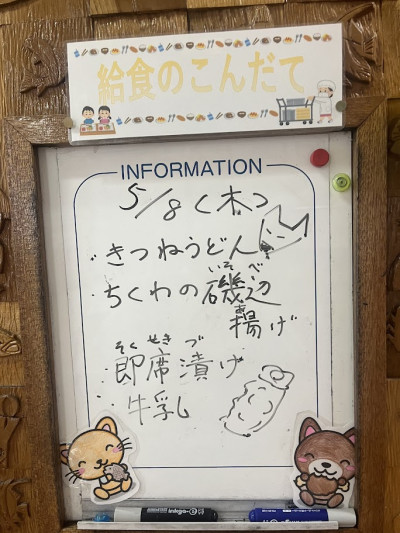 給食のこんだて
INFORMATION
5/8(木)
・きつねうどん
いそべ
・ちくわの磯辺
あ
揚げ
そくせきづ
・即席漬け
・牛乳